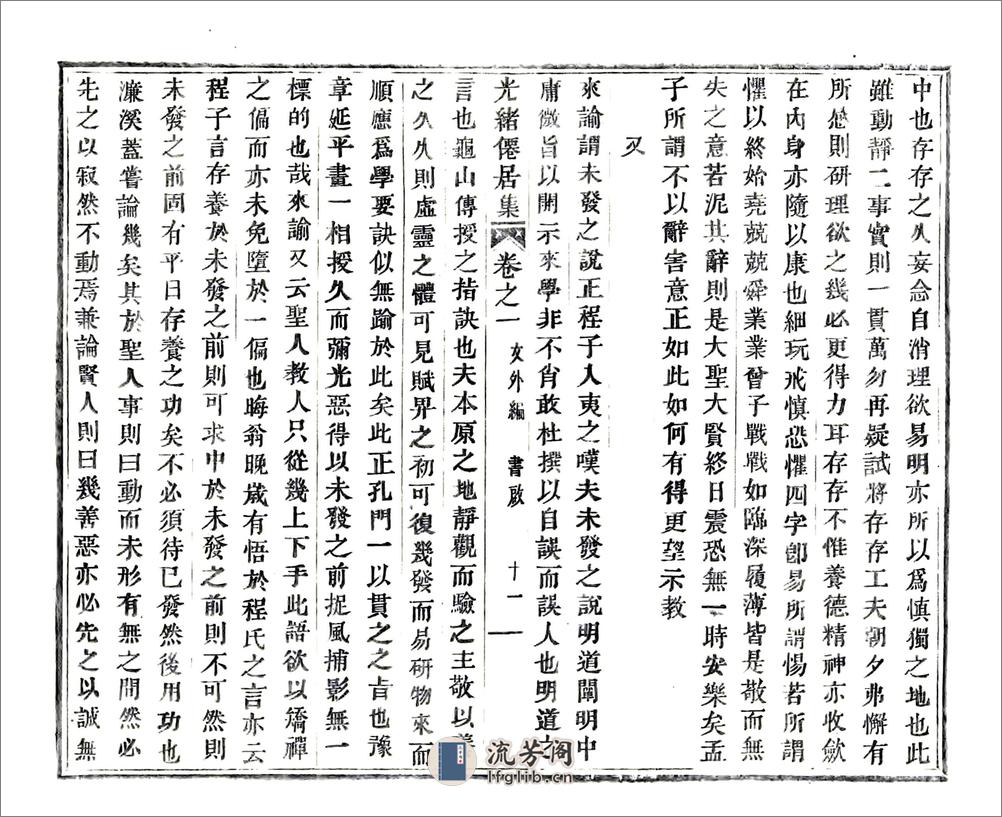 中也存存之久妄念自消理欲易明亦所以爲慎獨之地也此
雖動靜二事實則一貫萬勿再疑試將存存工夫朝夕弗懈有
所怠則研理欲之幾必更得力耳存存不惟養德精神亦收斂
在內身亦隨以康也細玩戒慎恐懼四字卽易所謂惕若所謂
懼以終始堯兢兢舜業業曾子戰戰如臨深履薄皆是敬而無
失之意若泥其辭則是大聖大賢終日震恐無一時安樂矣孟
子所謂不以辭害意正如此如何有得更望示教
又
來諭謂未發之說正程子人夷之嘆夫未發之說明道闡明中
庸微旨以開示來學非不肖敢杜撰以自誤而誤人也明道之
光緒僊居集
卷之一
文外編
書啟
十二
言也龜山傳授之指訣也夫本原之地靜觀而驗之主敬以養
之久久則虛靈之體可見賦畀之初可復幾發而易研物來而
順應爲學要訣似無踰於此矣此正孔門一以貫之之旨也豫
章延平畫一相授久而彌光惡得以未發之前捉風捕影無一
標的也哉來諭又云聖人教人只從幾上下手此語欲以矯禪
之偏而亦未免墮於一偏也晦翁晚歲有悟於程氏之言亦云
程子言存養於未發之前則可求中於未發之前則不可然則
未發之前固有平日存養之功矣不必須待已發然後用功也
濂溪蓋嘗論幾矣其於聖人事則曰動而未形有無之間然必
先之以寂然不動焉兼論賢人則曰幾善惡亦必先之以誠無
流芳閣
lfglib.cn